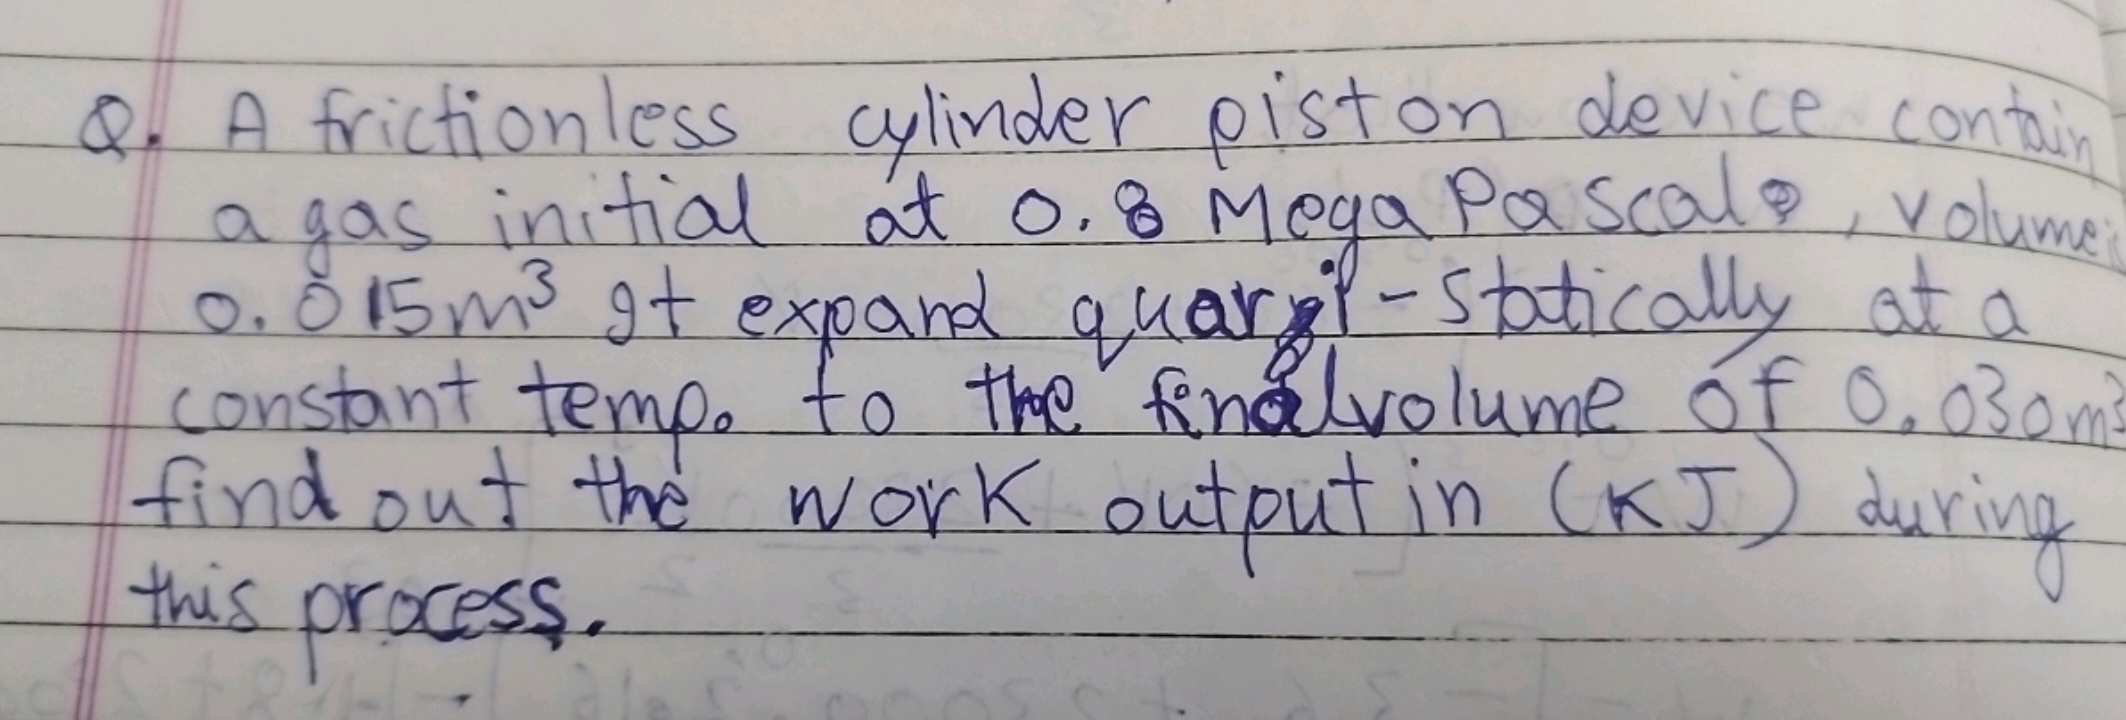 Q. A frictionless cylinder piston device contain
a gas initial at 0.8 Mega Pascal, volume
0.015m³ It expand quari-statically at a
constant temp. to the final volume of 0.030m³
find out the work output in (KJ) during
this process.